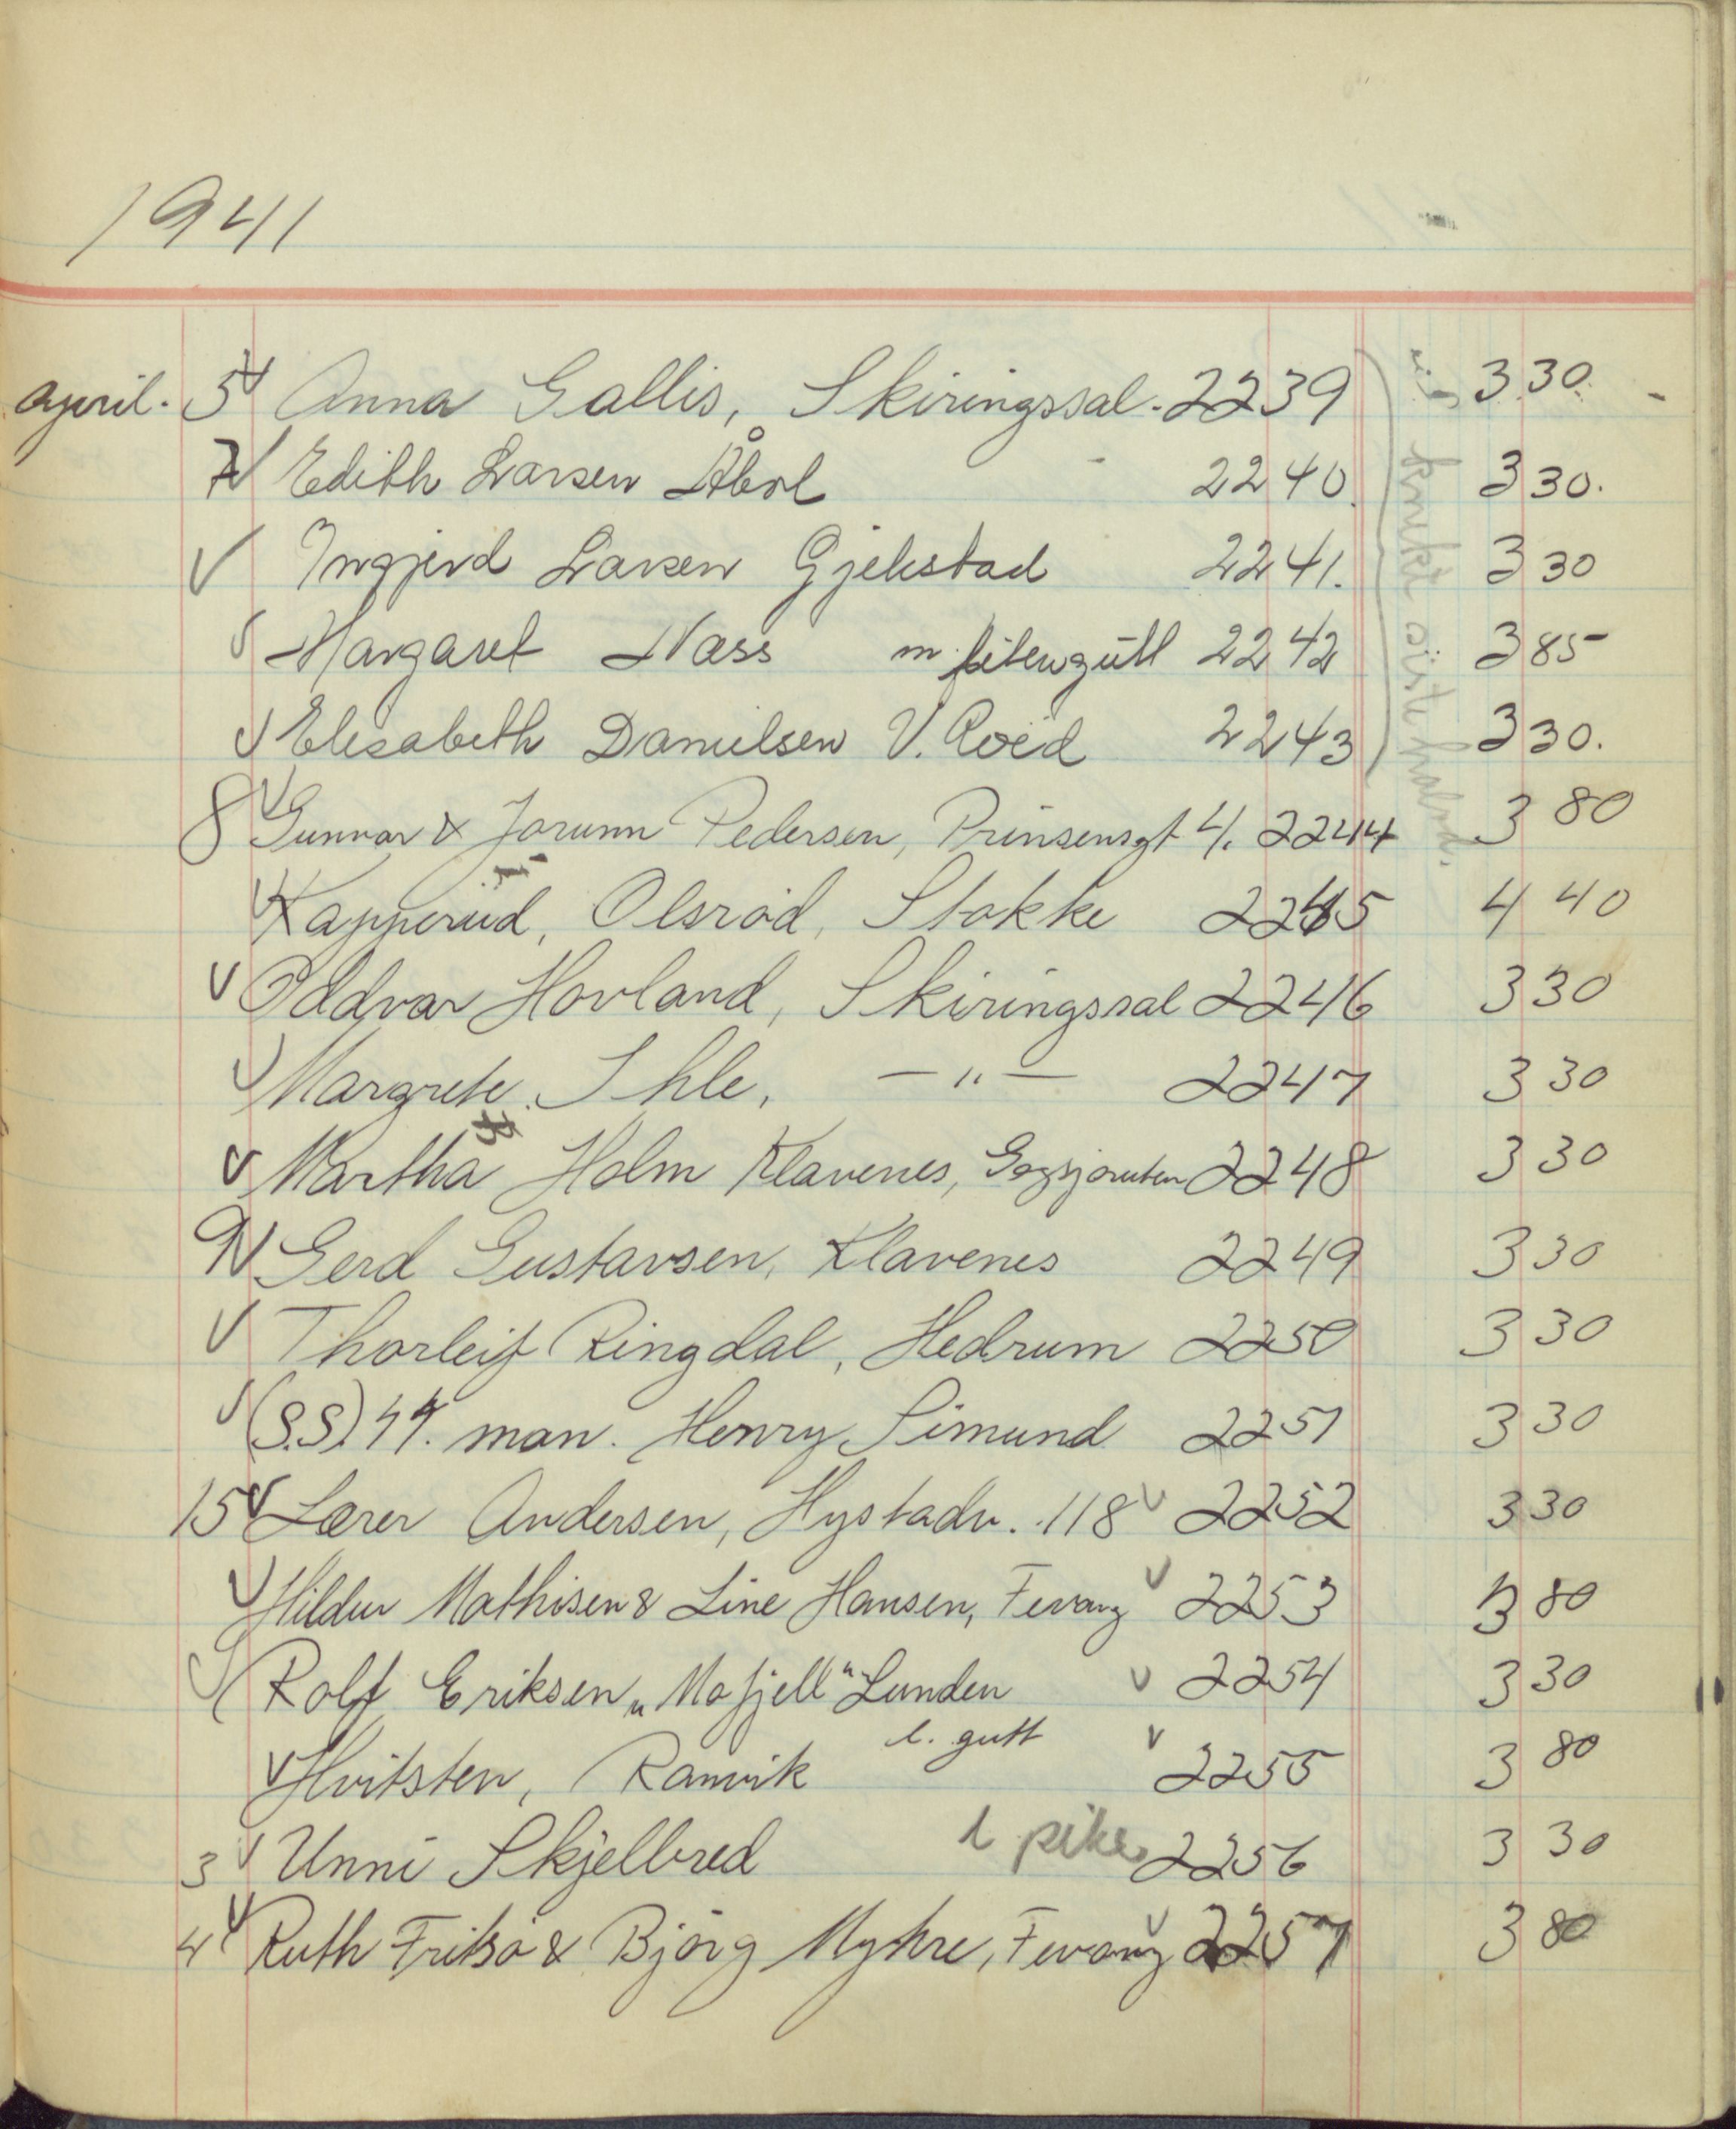 1941
april. 5 V Anna Gallis, Skiringssal. 2239 3 30.
7 V Edith Larsen Åbol 2240. 3 30.
V Ingjerd Larsen Gjekstad 2241. 3 30
V Margaret Næss m. liten gutt 2242 3 85
V Elisabeth Danielsen V. Roed 2243 3 30.
8 V Gunvor & Jorunn Pedersen, Prinsensgt 4. 2244 3 80
V Kapperud, Olsrød, Stokke 2245 4 40
V Oddvar Hovland, Skiringssal 2246 3 30
V Margrete Ihle, — " — 2247 3 30
V Martha Holm Klavenes, 2248 3 30
9 V Gerd Gustavsen, Klavenes 2249 3 30
V Thorleif Ringdal, Hedrum 2250 3 30
V (S.S.) man. Henry Simund 2251 3 30
15 V Lærer Andersen, Hystadv. 118 V 2252 3 30
V Hildur Mathisen & Line Hansen, Fevang V 2253 3 80
V Rolf Eriksen „Mofjell" Lunden V 2254 3 30
V Hvitsten, Ranvik l. gutt V 2255 3 80
3 V Unni Skjelbred l pike 2256 3 30
4 V Ruth Fritsø & Bjørg Myhre, Fevang V 2257 3 80